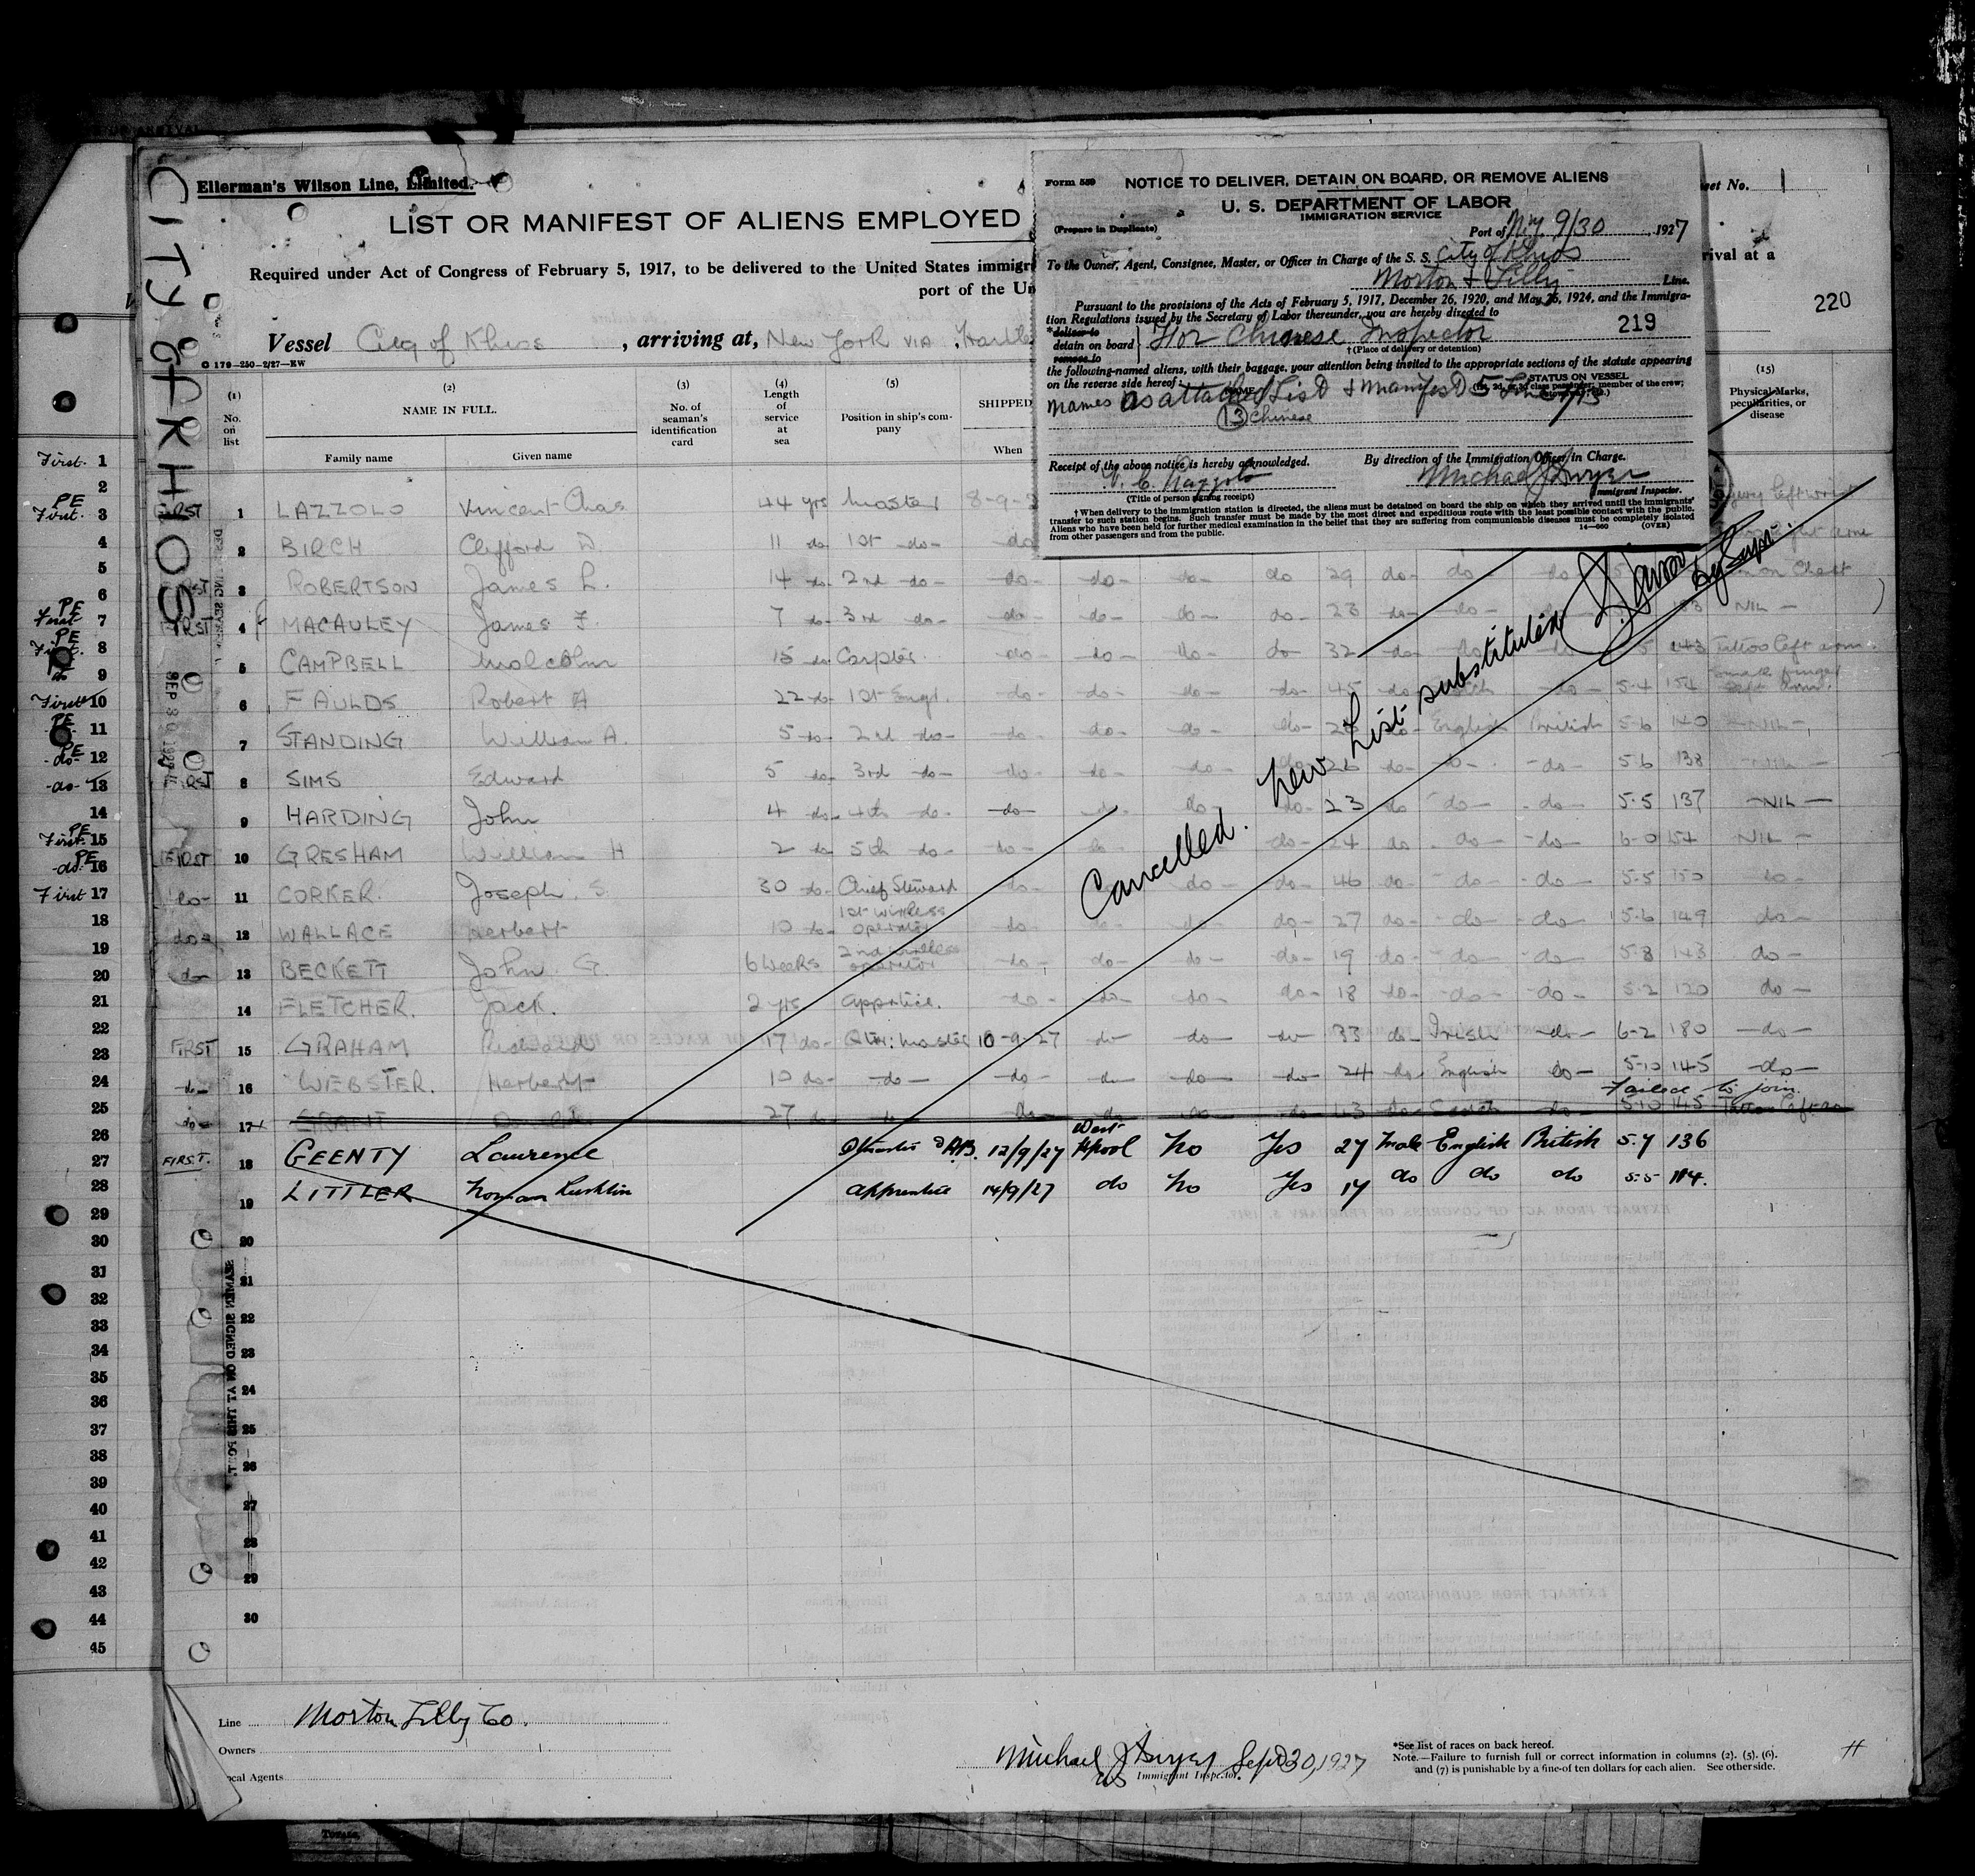 Ellerman's Wilson Line, Limited.
LIST OR MANIFEST OF ALIENS EMPLOYED
Required under Act of Congress of February 5, 1917, to be delivered to the United States immigr
port of the Un
Vessel City of Khios, arriving at, New York VIA Hartle
G 179-250-2/27-EW
CITY OF KHIOS
Sheet No. 1
rival at a
220
Form 559 NOTICE TO DELIVER, DETAIN ON BOARD, OR REMOVE ALIENS
U. S. DEPARTMENT OF LABOR
IMMIGRATION SERVICE
(Prepare in Duplicate)
Port of N.Y. 9/30, 1927
To the Owner, Agent, Consignee, Master, or Officer in Charge of the S. S. City of Khios
Morton & Lilly Line.
Pursuant to the provisions of the Acts of February 5, 1917, December 26, 1920, and May 26, 1924, and the Immigra-
tion Regulations issued by the Secretary of Labor thereunder, you are hereby directed to
219
*deliver to
detain on board For Chinese Inspector
remove to
†(Place of delivery or detention)
the following-named aliens, with their baggage, your attention being invited to the appropriate sections of the statute appearing
on the reverse side hereof:
STATUS ON VESSEL
Names as attached List & Manifest
(13) Chinese
Receipt of the above notice is hereby acknowledged.
By direction of the Immigration Officer in Charge.
Michael J Dwyer
Immigrant Inspector.
(Title of person signing receipt)
†When delivery to the immigration station is directed, the aliens must be detained on board the ship on which they arrived until the immigrants'
transfer to such station begins. Such transfer must be made by the most direct and expeditious route with the least possible contact with the public.
Aliens who have been held for further medical examination in the belief that they are suffering from communicable diseases must be completely isolated
from other passengers and from the public.
14—660 (OVER)
(1) No. on list
(2) NAME IN FULL.
Family name Given name
(3) No. of seaman's identification card
(4) Length of service at sea
(5) Position in ship's company
SHIPPED
When
(15) Physical Marks, peculiarities, or disease
FIRST 1 LAZZOLO Vincent Chas 44 yrs Master 8-9-2 left wrist
2 BIRCH Clifford D. 11 do 1st do do right arm
3 ROBERTSON James L. 14 do 2nd do do do do do 29 do do do on Chest
FIRST 4 MACAULEY James F. 7 do 3rd do do do do do 28 do do NIL
5 CAMPBELL Malcolm 15 do Carpter do do do do 32 do do 143 Tattoo left arm
6 FAULDS Robert A 22 do 1st Engr. do do do do 45 do do 5-4 154 small finger left arm
7 STANDING William A. 5 do 2nd do do do do do English British 5-6 140 NIL
8 SIMS Edward 5 do 3rd do do do do do do do do 5-6 138 NIL
9 HARDING John 4 do 4th do do do do do 23 do do do 5-5 137 NIL
FIRST 10 GRESHAM William H 2 do 5th do do do do 24 do do do 6-0 154 NIL
do 11 CORKER. Joseph S. 30 do Chief Steward do do do 46 do do do 5-5 150 do
do 12 WALLACE Herbert 10 do 1st wireless operator do do do do 27 do do do 5-6 149 do
do 13 BECKETT John G. 6 weeks 2nd wireless operator do do do do 19 do do do 5-8 143 do
14 FLETCHER. Jack. 2 yrs apprtice. do do do do 18 do do do 5-2 120 do
FIRST 15 GRAHAM Richard 17 do Qtr: Master 10-9-27 do do do 33 do Irish do 6-2 180 do
do 16 WEBSTER. Herbert 10 do do do do do do 24 do English do 5-10 145 do
Failed to join.
do 17 GRANT 27 do do do do do do 43 do Scotch do 5-10 145
FIRST. 18 GEENTY Laurence 12/9/27 West Hpool No Yes 27 Male English British 5.7 136
19 LITTLER Norman apprentice 14/9/27 do No Yes 17 do do do 5-5 114.
Cancelled. New List substituted
20
21
22
23
24
25
26
27
28
29
30
SEAMEN SIGNED ON AT THIS PORT
SEP 30 1927
Line Morton Lilly Co.
Owners
Local Agents
Michael J Dwyer Sept 30, 1927
Immigrant Inspector.
*See list of races on back hereof.
Note.—Failure to furnish full or correct information in columns (2), (5), (6),
and (7) is punishable by a fine of ten dollars for each alien. See other side.
First 1
2
PE First. 3
4
5
6
PE First 7
PE First. 8
do 9
First 10
PE 11
PE do 12
do 13
14
PE First 15
PE do 16
First 17
18
19
20
21
22
23
24
25
26
27
28
29
30
31
32
33
34
35
36
37
38
39
40
41
42
43
44
45